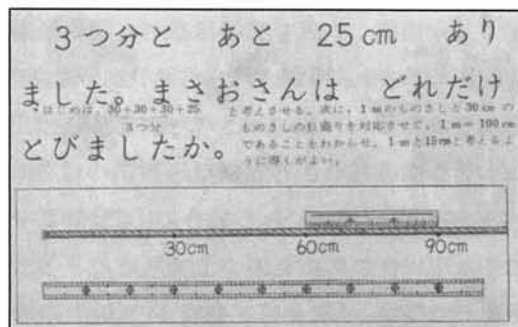 3つ分と あと 25cm あり
ました。まさおさんは どれだけ
はじめは、30+30+30+25 と考えさせる。次に、1mのものさしと30cmの
3つ分
ものさしの目盛りを対応させて、1m=100cm
とびましたか。
であることをわからせ、1mと15cmと考えるよ
うに導くがよい。
30cm 60cm 90cm